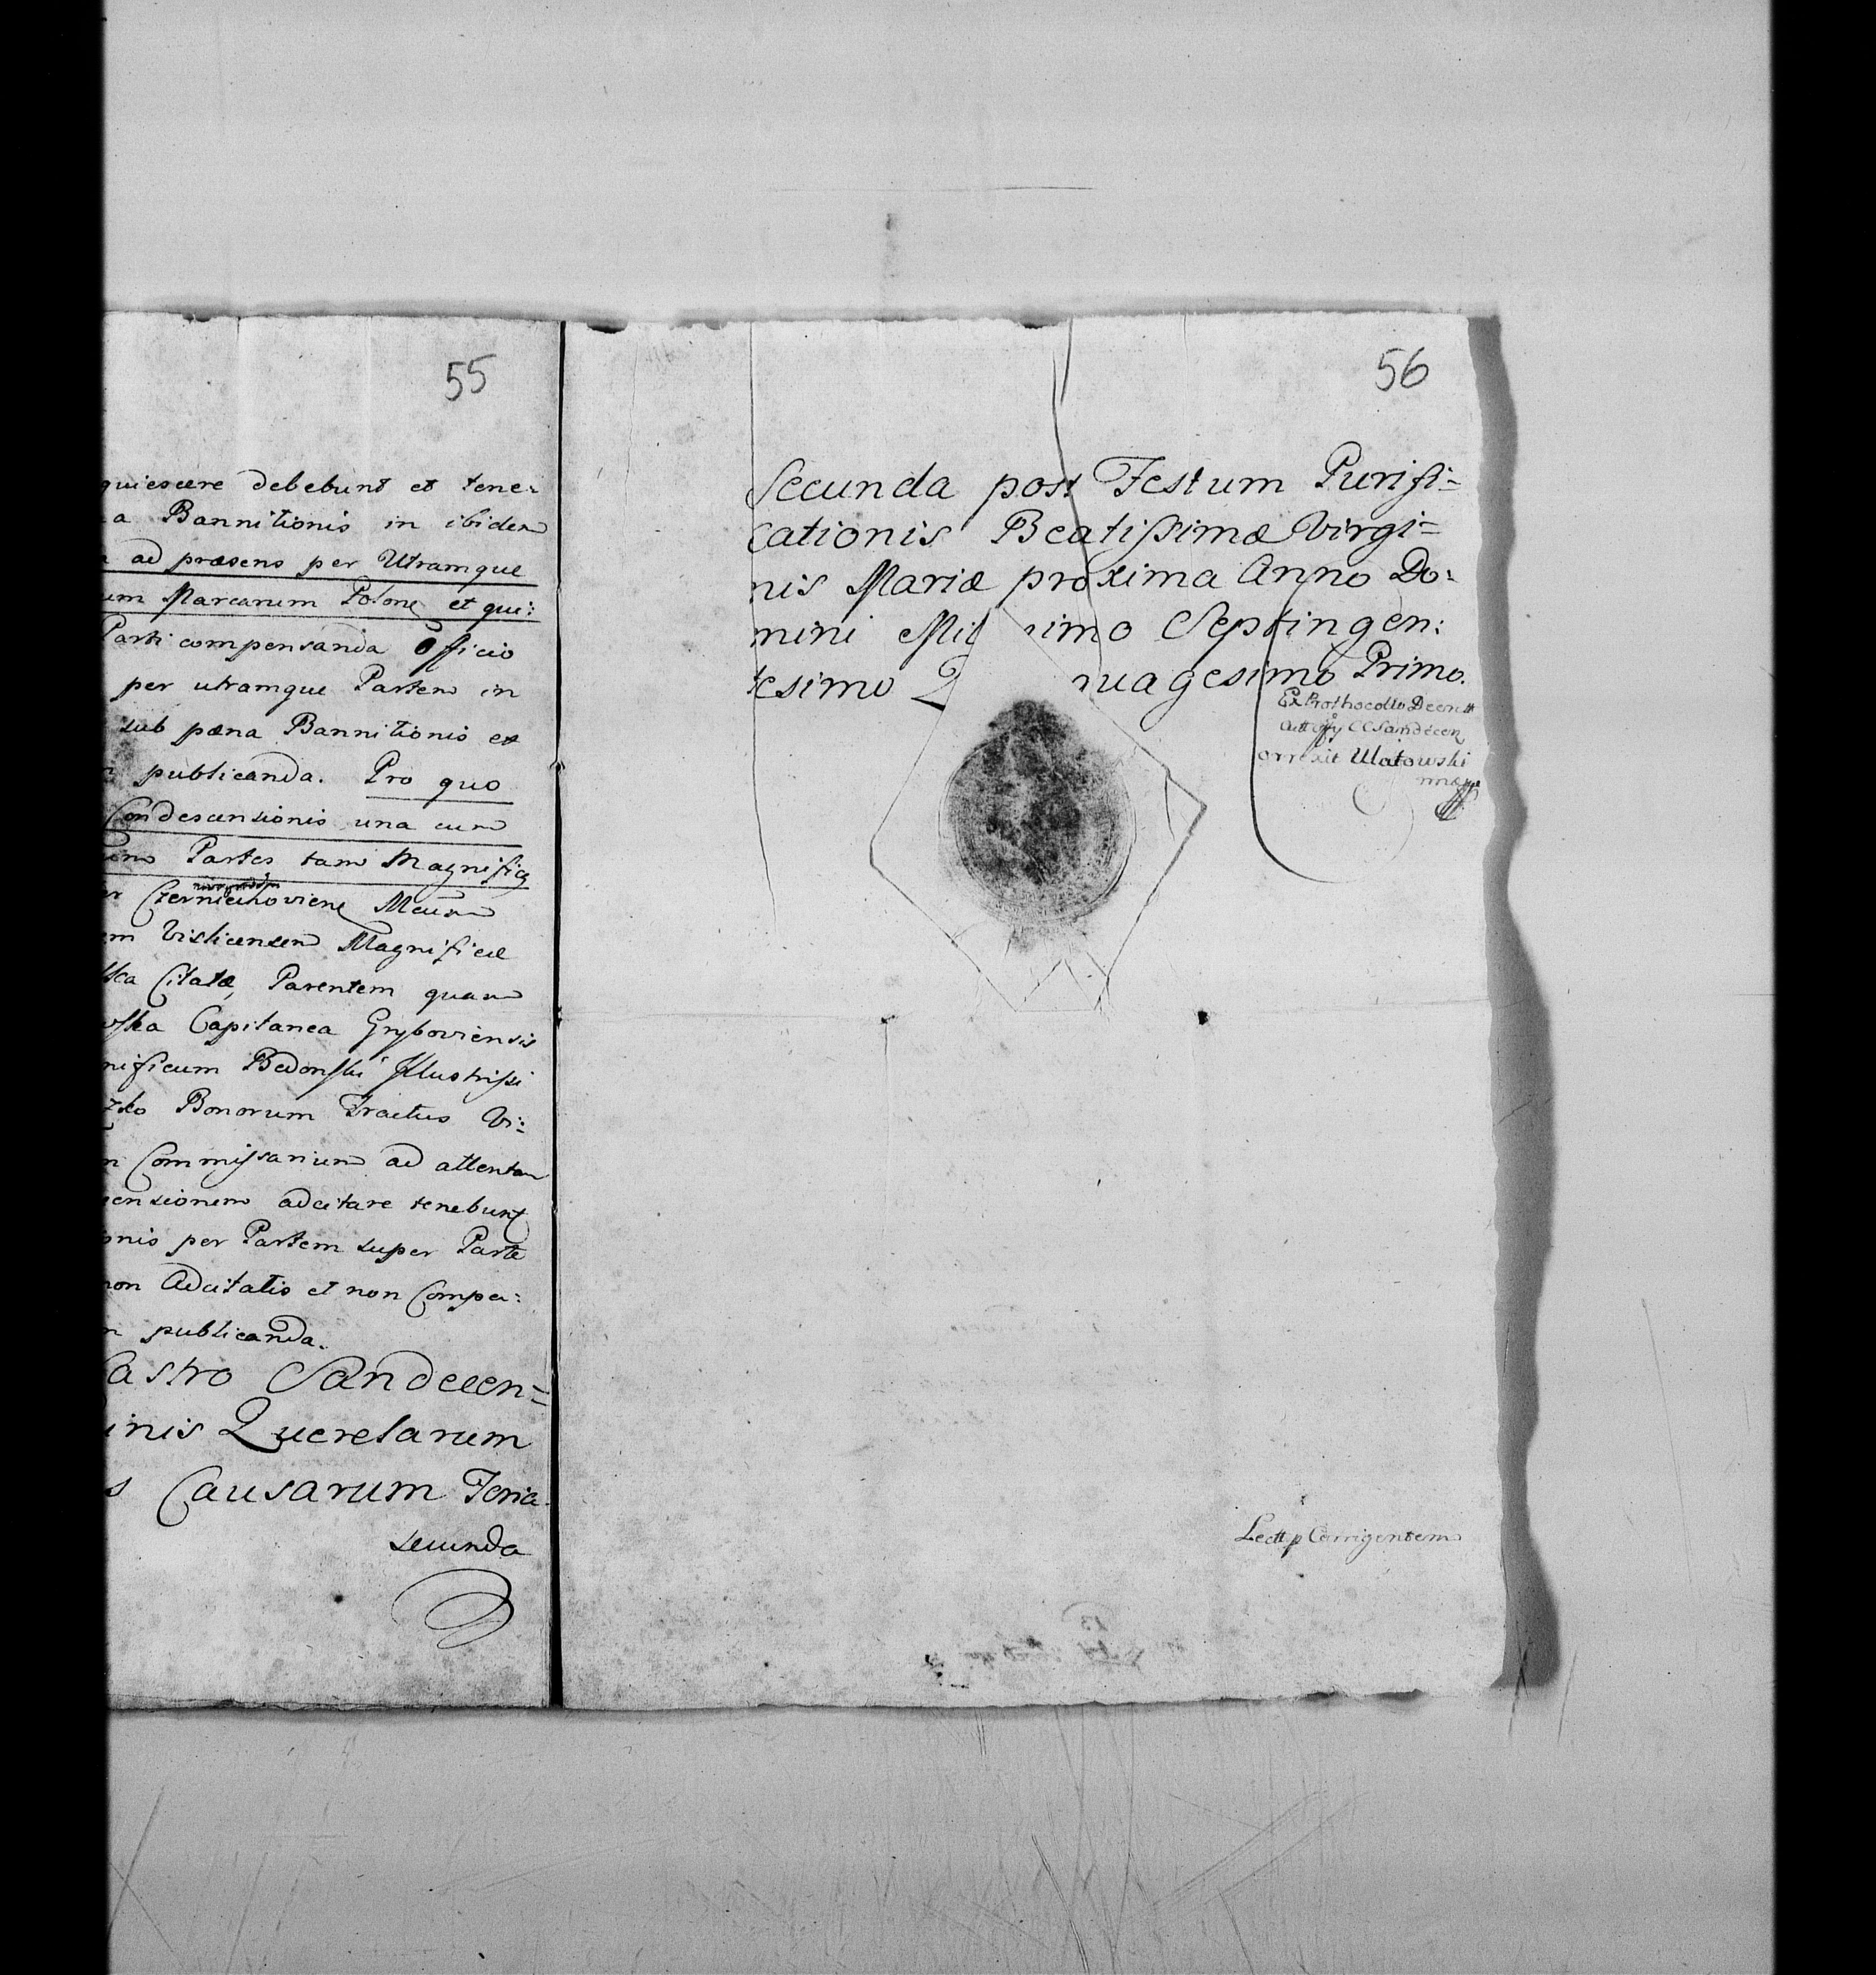 55
quiescere debebunt et tene:
a Bannitionis in ibidem
ad præsens per Utramque
um Marcarum Polonę et qui:
Parti compensanda Officio
per utramque Partem in
sub pæna Bannitionis et
publicanda. Pro quo
Condescensionis una cum
Partes tam Magnificę
Czerniechovienę
em Visliciensem Magnificæ
Citatæ, Parentem quam
Capitanea Gryboviensis
nificum Bedonski Illustrissi
Bonorum Tractus Vi:
Commissarium ad attentam
ensionem adcitare tenebunt
onis per Partem super Parte
non Adcitatis et non Compa:
publicanda.
astro Sandecen=
inis Querelarum
s Causarum Feria
secunda
56
Secunda post Festum Purifi=
cationis Beatissimæ Virgi=
nis Mariæ proxima Anno Do:
mini Mil simo Septingen:
tesimo Q uagesimo Primo.
Ex Prothocollo Decrett
Sandecen
orrexit Ulatowski
mpp
Lectt p Corrigentem